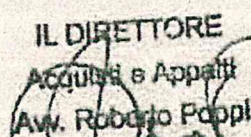 IL DIRETTORE
Acquisti e Appalti
Avv. Roberto Poppi